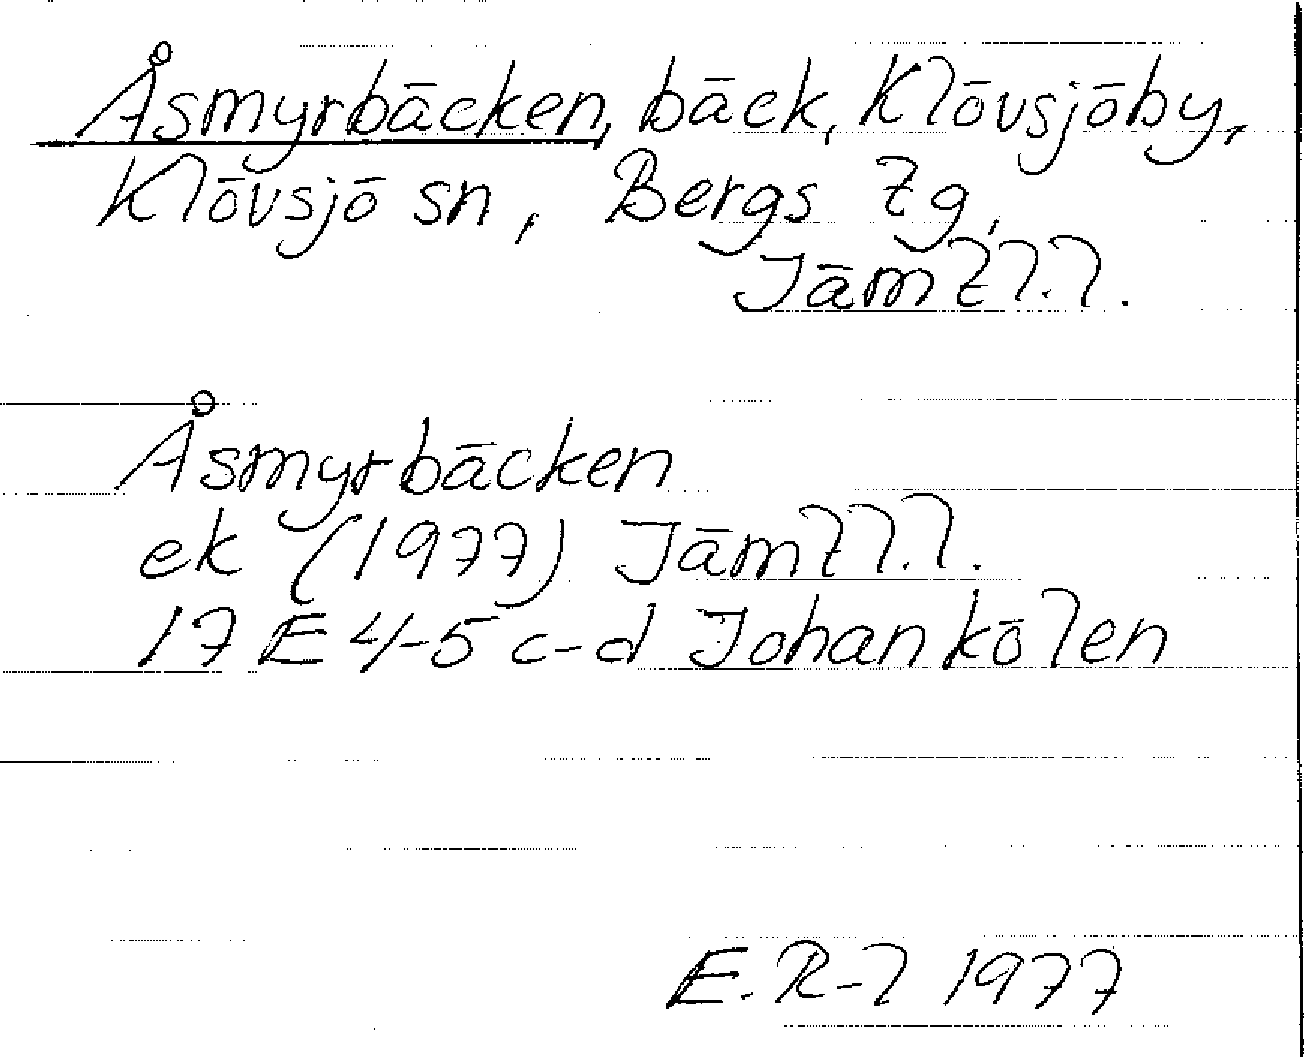 Åsmyrbäcken, bäck, Klövsjöby,
Klövsjö sn, Bergs tg,
Jämtl.l.
Åsmyrbäcken
ek (1977) Jämtl.l.
17 E 4-5 c-d Johankölen
E.R-l 1977